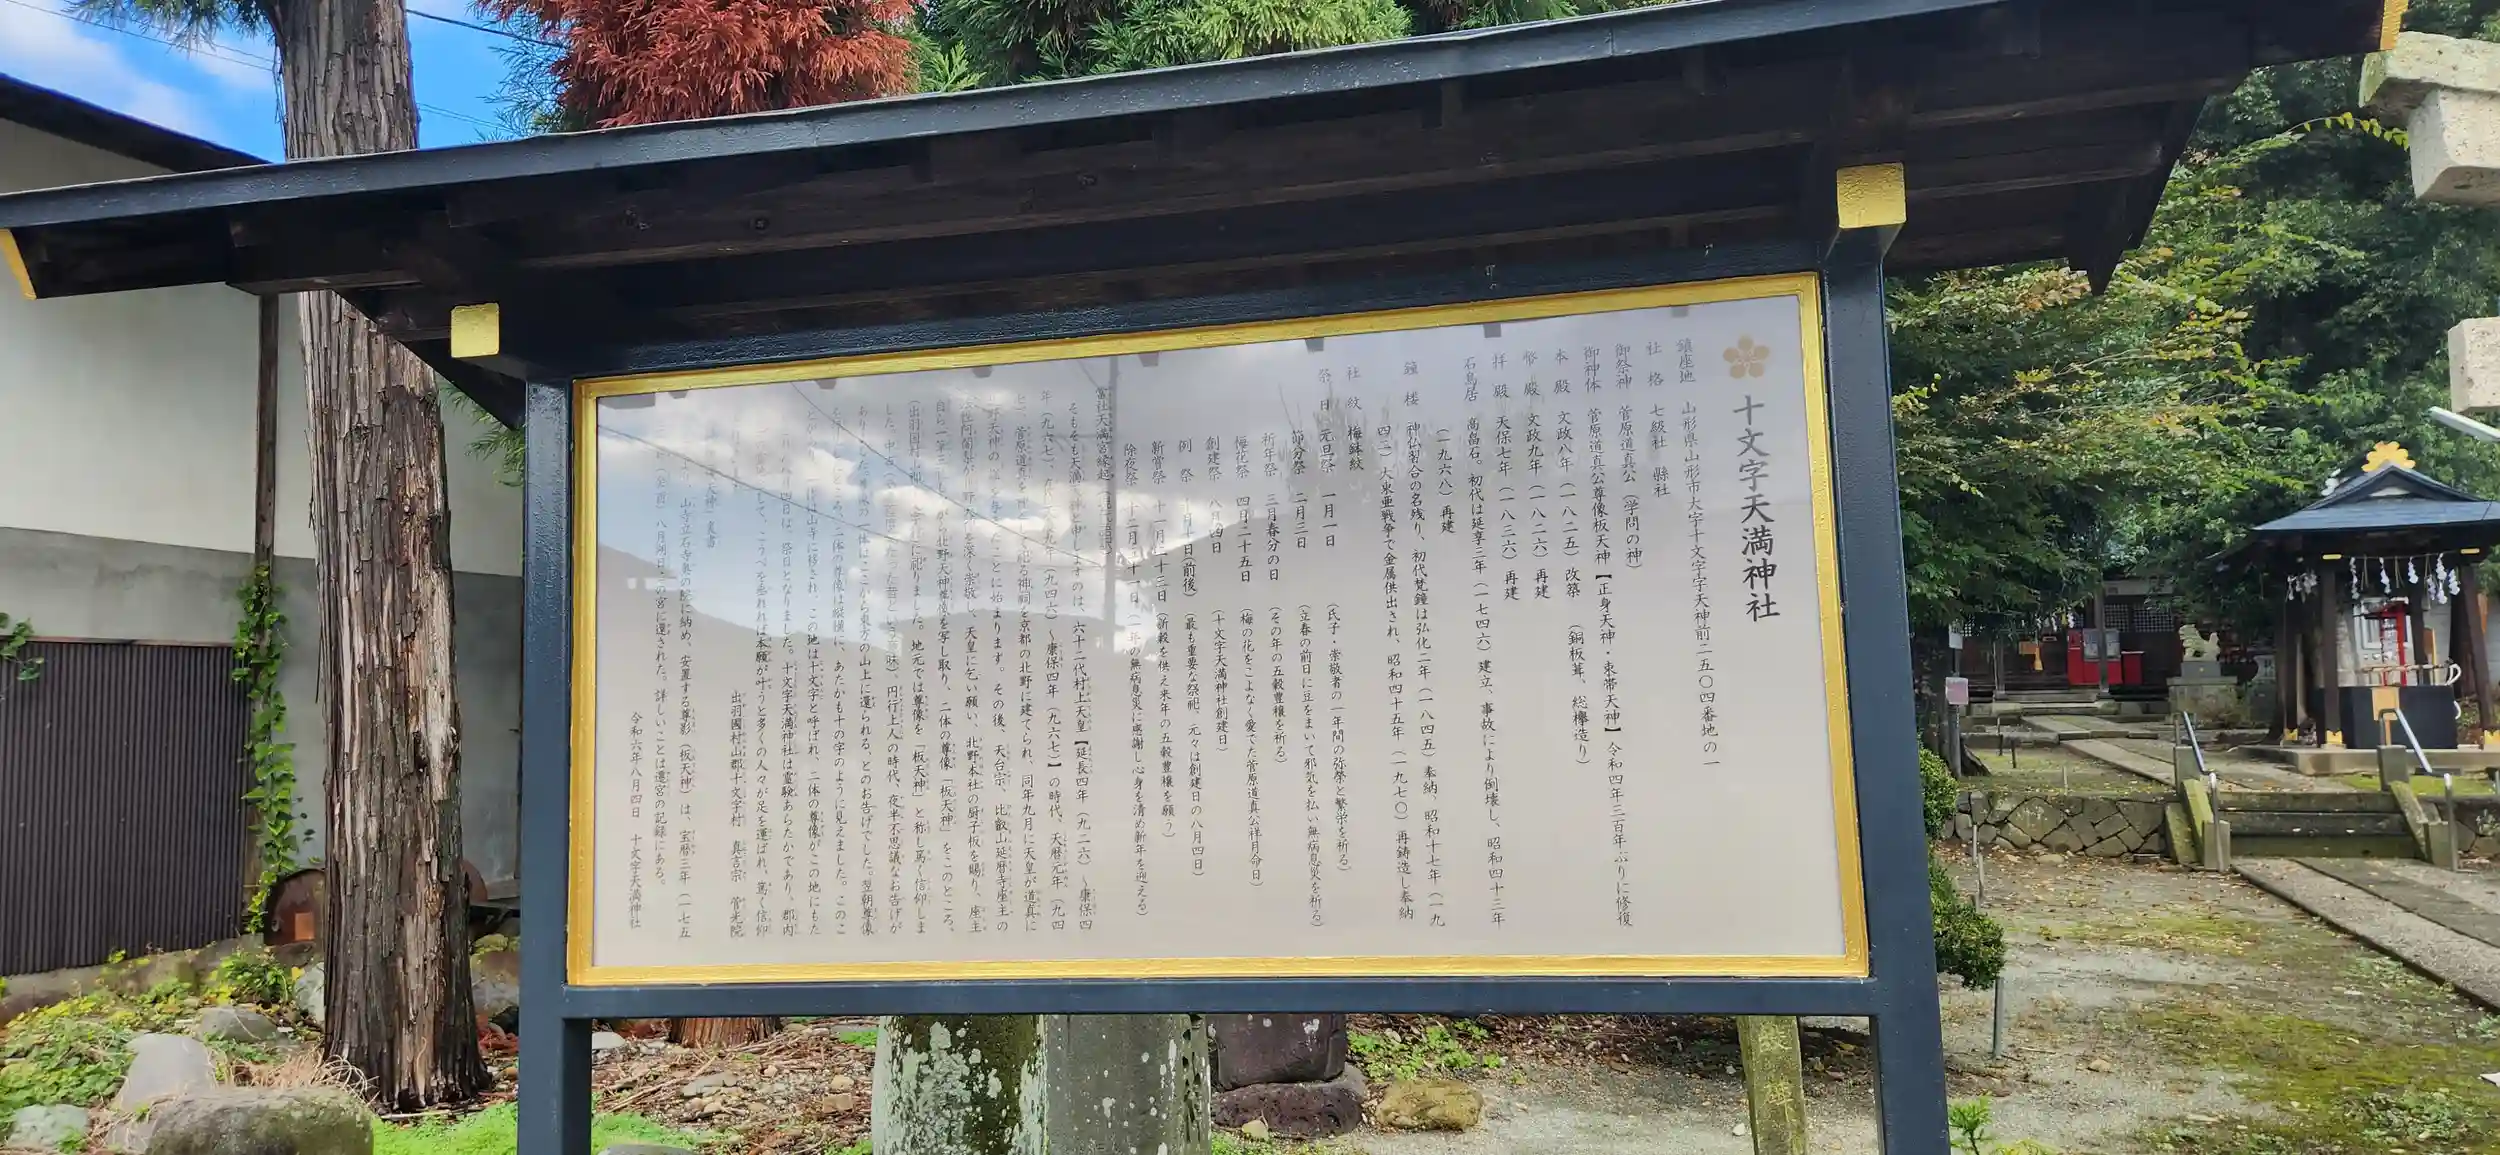 十文字天満神社
鎮座地 山形県山形市大字十文字字天神前二五〇四番地の一
社格 七級社 縣社
御祭神 菅原道真公(学問の神)
御神体 菅原道真公尊像板天神【正身天神・束帯天神】令和四年三百年ぶりに修復
本殿 文政八年(一八二五)改築 (銅板葺、総欅造り)
幣殿 文政九年(一八二六)再建
拝殿 天保七年(一八三六)再建
石鳥居 高畠石。初代は延享三年(一七四六)建立、事故により倒壊し、昭和四十三年
(一九六八)再建
鐘楼 神仏習合の名残り、初代梵鐘は弘化二年(一八四五)奉納、昭和十七年(一九
四二)大東亜戦争で金属供出され、昭和四十五年(一九七〇)再鋳造し奉納
社紋 梅鉢紋
祭日 元旦祭 一月一日 (氏子・崇敬者の一年間の弥栄と繁栄を祈る)
節分祭 二月三日 (立春の前日に豆をまいて邪気を払い無病息災を祈る)
祈年祭 三月春分の日 (その年の五穀豊穣を祈る)
梅花祭 四月二十五日 (梅の花をこよなく愛でた菅原道真公祥月命日)
創建祭 八月四日 (十文字天満神社創建日)
例祭 十月十日(前後) (最も重要な祭祀、元々は創建日の八月四日)
新嘗祭 十一月二十三日 (新穀を供え来年の五穀豊穣を願う)
除夜祭 十二月三十一日 (一年の無病息災に感謝し心身を清め新年を迎える)
當社天満宮縁起
そもそも天満天神と申しますのは、六十二代村上天皇【延長四年(九二六)~康保四
年(九六七)、在位天慶九年(九四六)~康保四年(九六七)】の時代、天暦元年(九四
七)、菅原道真を神として祀る神祠を京都の北野に建てられ、同年九月に天皇が道真に
北野天神の 号を与えたことに始まります。その後、天台宗、比叡山延暦寺座主の
阿闍梨が北野天神を深く崇敬し、天皇に乞い願い、北野本社の厨子板を賜り、座主
自ら一筆三礼しながら北野天神尊像を写し取り、二体の尊像「板天神」をこのところ、
(出羽国村山郡十文字村)に祀りました。地元では尊像を「板天神」と称し篤く信仰しま
した。中古 円行上人の時代、夜半不思議なお告げが
ありました。尊像の一体はここから東方の山上に還られる、とのお告げでした。翌朝尊像
ところ、二体の尊像は縦横に、あたかも十の字のように見えました。このこ
とから 一体は山寺に移され、この地は十文字と呼ばれ、二体の尊像がこの地にもた
八月四日は、祭日となりました。十文字天満神社は霊験あらたかであり。郡内
して、こうべを垂れれば本願が叶うと多くの人々が足を運ばれ、篤く信仰
出羽國村山郡十文字村 真言宗 菅光院
天神」裏書
山寺立石寺奥の院に納め、安置する尊影(板天神)は、宝暦三年(一七五
八月朔日 この宮に還された。詳しいことは還宮の記録にある。
令和六年八月四日 十文字天満神社